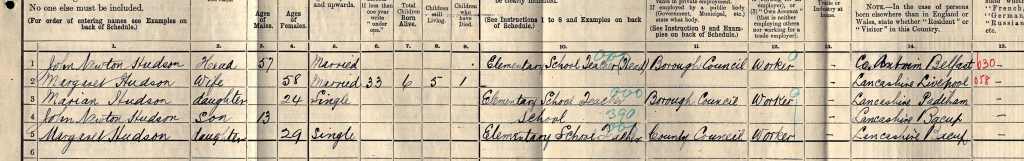 No one else must be included.
(For order of entering names see Examples on back of Schedule.)
Ages of Males.
Ages of Females.
and upwards.
if less than one year write "under one."
Total Children Born Alive.
Children still Living.
Children who have Died.
(See Instructions 1 to 8 and Examples on back of Schedule.)
If employed by a public body (Government, Municipal, etc.) state what body.
(See Instruction 9 and Examples on back of Schedule.)
(that is neither employing others nor working for a trade employer).
NOTE.—In the case of persons born elsewhere than in England or Wales, state whether "Resident" or "Visitor" in this Country.
1. 2. 3. 4. 5. 6. 7. 8. 9. 10. 11. 12. 13. 14. 15.
1 John Newton Hudson Head 57 Married Elementary School Teacher (Head) 000 Borough Council Worker — Co Antrim Belfast 030
2 Margaret Hudson Wife 58 Married 33 6 5 1 — Lancashire Liverpool 058
3 Marian Hudson daughter 24 Single Elementary School Teacher 000 Borough Council Worker — Lancashire Padiham
4 John Newton Hudson Son 13 School 390 — Lancashire Bacup
5 Margaret Hudson daughter 29 Single Elementary School County Council Worker — Lancashire Bacup
6